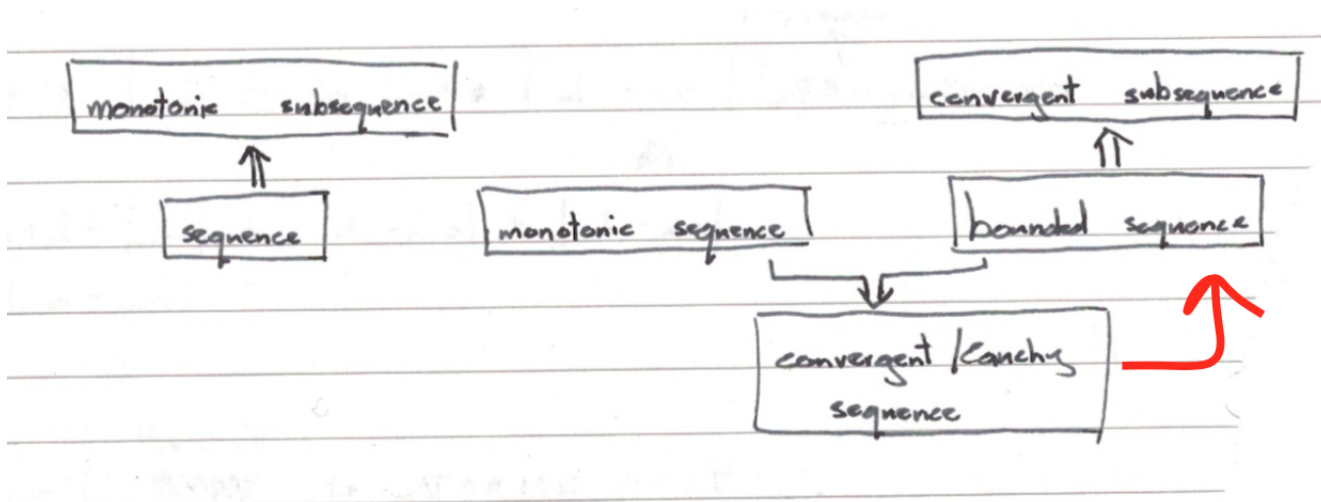 monotonic subsequence
convergent subsequence
sequence
monotonic sequence
bounded sequence
convergent / Cauchy
sequence